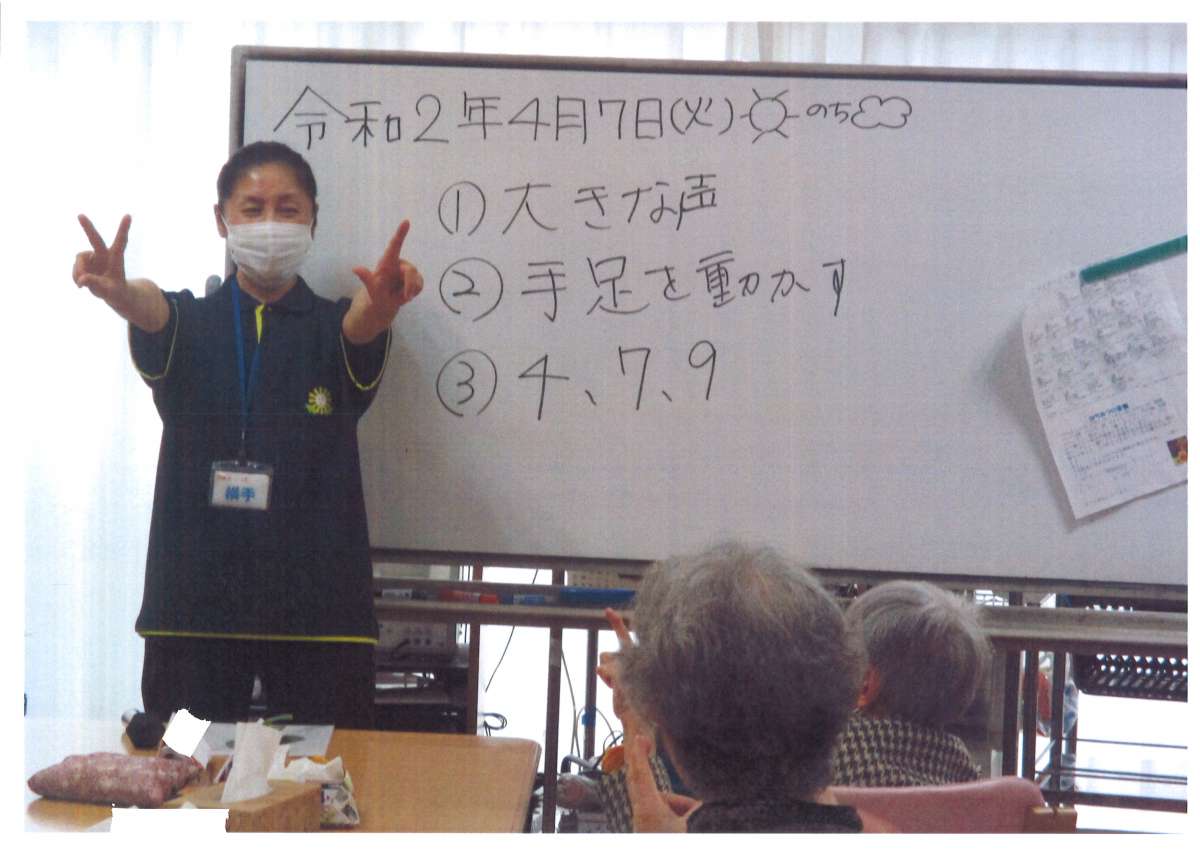 令和2年4月7日(火) のち
①大きな声
②手足を動かす
③4、7、9
横手